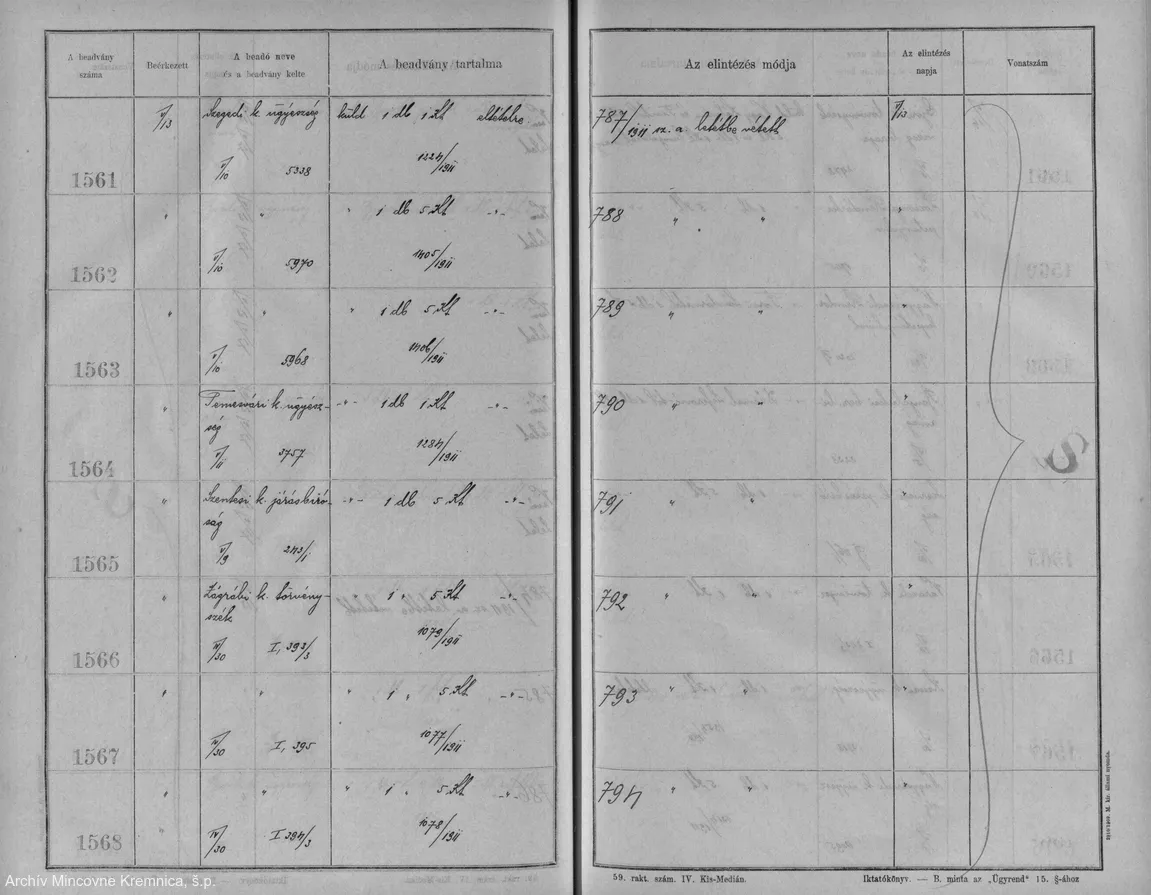 A beadvány száma
Beérkezett
A beadó neve és a beadvány kelte
A beadvány tartalma
Az elintézés módja
Az elintézés napja
Vonatszám
V/13 Szegedi k. ügyészség küld 1 db 1 Kt eltételre 787/1911 sz. a letétbe vétetett V/13
1561 V/10 5338 1224/1911
" " " 1 db 5 Kt -"- 788 " " "
1562 V/10 5970 1405/1911
" " " 1 db 5 Kt -"- 789 " "
1563 V/10 5968 1406/1911
" Temesvári k. ügyész- -"- 1 db 1 Kt -"- 790 " "
ség
1564 V/11 3757 1284/1911
" Szentesi k. járásbíró- -"- 1 db 5 Kt -"- 791 " " "
ság
1565 V/9 243/1
" Zágrábi k. törvény- 1 " 5 Kt 792 " " "
szék
1566 IV/30 I, 393/3 1079/1911
" " " 1 " 5 Kt -"- 793 " " "
1567 IV/30 I, 395 1077/1911
" " " 1 " 5 Kt -"- 794 " " "
1568 " IV/30 I 394/3 1078/1911
59. rakt. szám. IV. Kis-Medián.
Iktatókönyv. — B. minta az „Ügyrend" 15. §-ához
Archív Mincovne Kremnica, š.p.